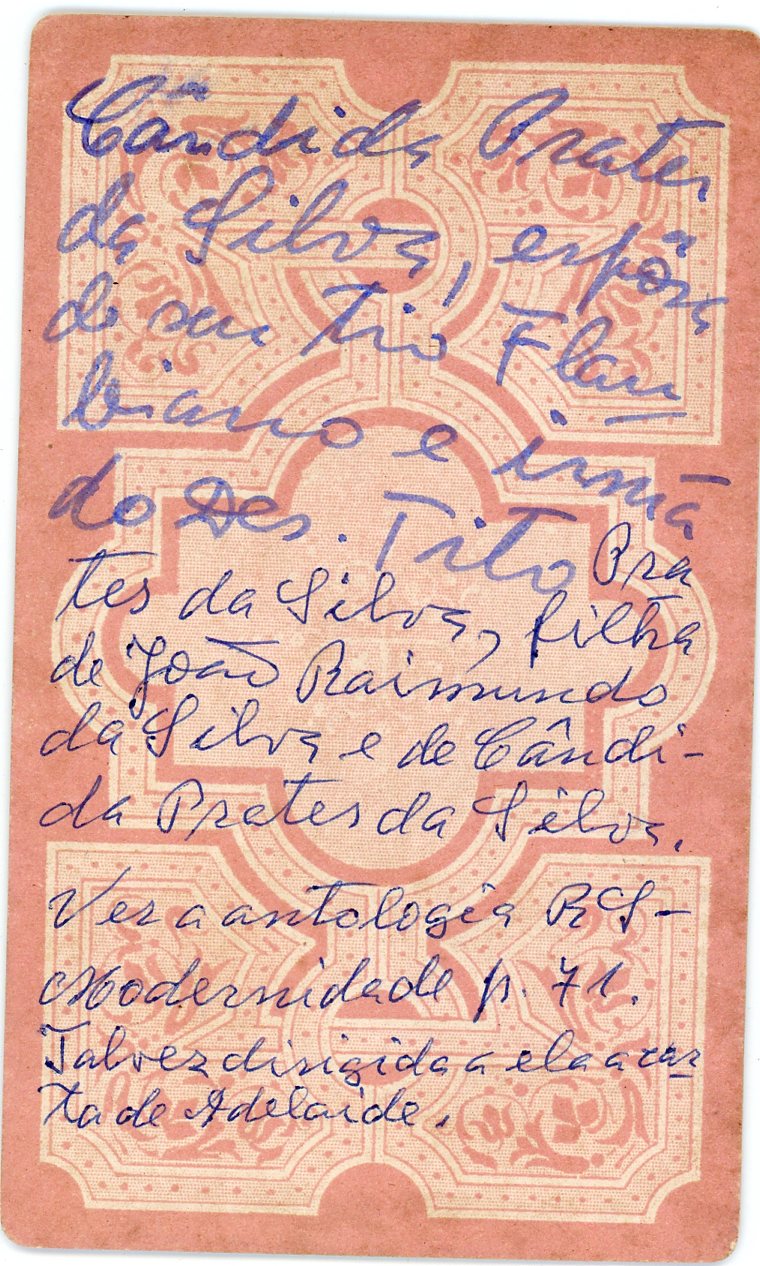 Cândida Prates
da Silva, espôsa
do seu tio Flau
biano e irmã
do Des. Tito Pra
tes da Silva, filha
de João Raimundo
da Silva e de Cândi-
da Prates da Silva.
Ver a antologia RS-
Modernidade p. 71.
Talvez dirigida a ela a car
ta de Adelaide.